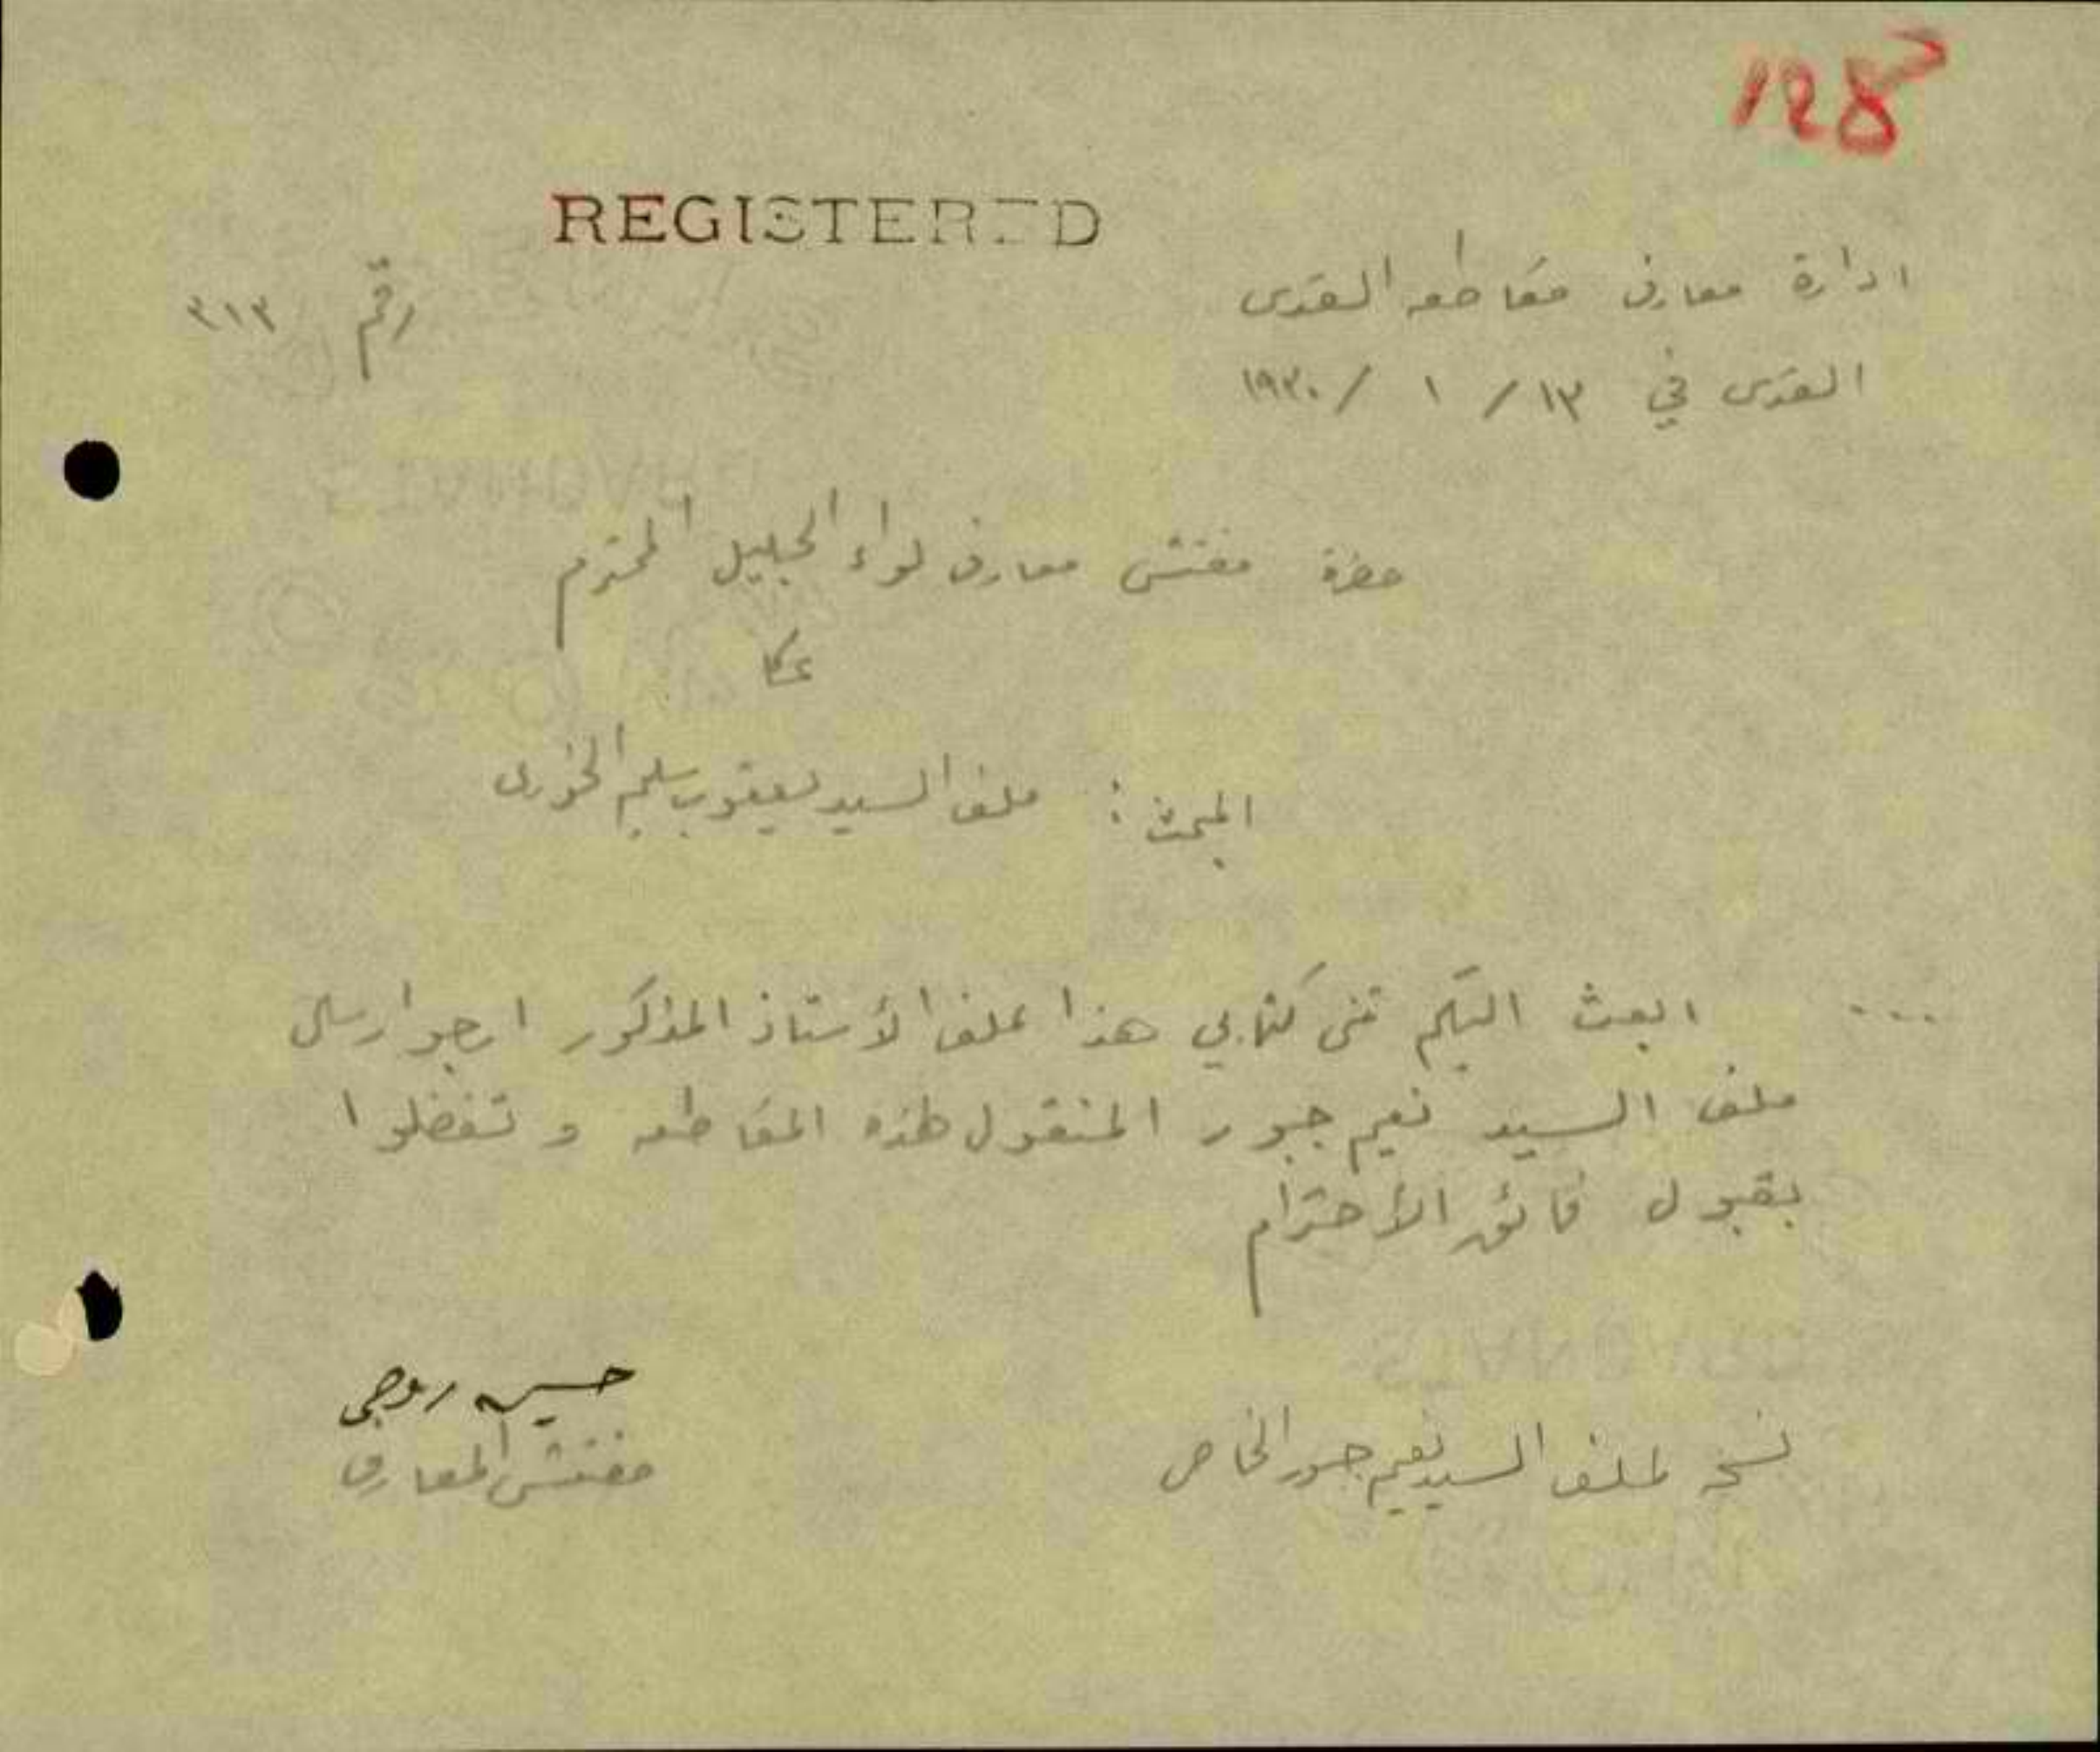 128
REGISTERED
ادارة معارف مقاطعه القدس
رقم ٣١٣
القدس في ١٣ / ١ / ١٩٣٠
حضرة مفتش معارف لواء الجليل المحترم
عكا
المبحث : ملف السيد يعقوب سليم الخوري
... ابعث اليكم ضمن كتابي هذا ملف الأستاذ المذكور ارجو ارسال
ملف السيد نعيم جبور المنقول لهذه المقاطعه و تفضلوا
بقبول فائق الأحترام
حسين روحي
مفتش المعارف
نسخه لملف السيد نعيم جبور الخاص